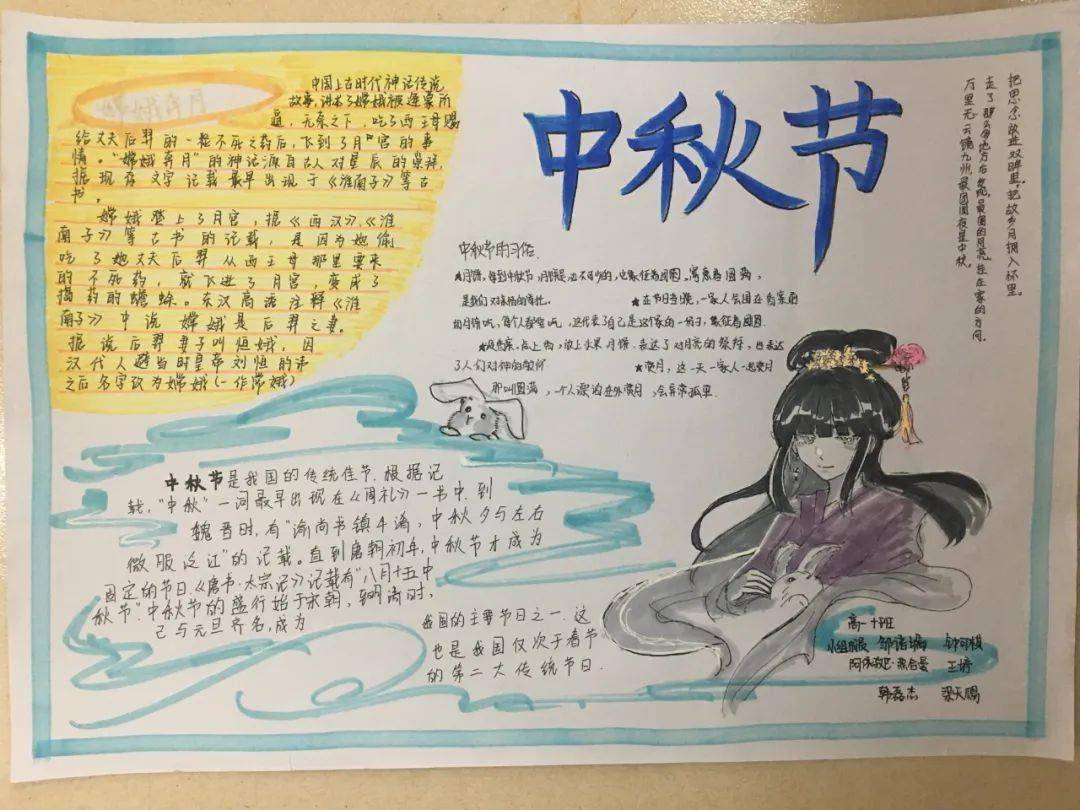 中秋节
嫦娥奔月
中国上古时代神话传说
故事,讲述了嫦娥被逢蒙所
逼,无奈之下,吃了西王母赐
给丈夫后羿的一粒不死之药后,飞到了月宫的事
情。"嫦娥奔月"的神话源自古人对星辰的崇拜,
据现存文字记载最早出现于《淮南子》等古
书。
嫦娥登上了月宫,据《西汉》《淮
南子》等古书的记载,是因为她偷
吃了她丈夫后羿从西王母那里要来
的不死药,就飞进了月宫,变成了
捣药的蟾蜍。东汉高诱注释《淮
南子》中说嫦娥是后羿之妻。
据说后羿妻子叫恒娥,因
汉代人避当时皇帝刘恒的讳
之后名字改为嫦娥(一作常娥)
把思念放进双眸里,把故乡月拥入杯里。
走了那么多地方后发现,最圆的月亮挂在家的方向。
万里无云镜九州,最团圆夜是中秋。
中秋节的习俗
★月饼,每到中秋节月饼是必不可少的,它象征着团圆。寓意着圆满,
★在节日当晚,一家人会围在
相月饼吃,每个人都要吃,这代表了自己是这个家的一份子,象征着团圆.
点上香,放上水果月饼,表达了对月亮的崇拜,也表达
了人们对神的敬仰
★赏月,这一天一家人一起赏月
那叫圆满,一个人漂泊在外赏月,会异常孤单.
中秋节是我国的传统佳节.根据记
载,"中秋"一词最早出现在《周礼》一书中.到
魏晋时,有"谕尚书镇牛渚,中秋夕与左右
微服泛江"的记载。直到唐朝初年,中秋节才成为
固定的节日.《唐书·太宗记》记载有"八月十五中
秋节"中秋节的盛行始于宋朝,至明清时,
已与元旦齐名,成为
我国的主要节日之一.这
也是我国仅次于春节
的第二大传统节日.
高一十班
小组成员
王婷
韩磊杰 梁天赐